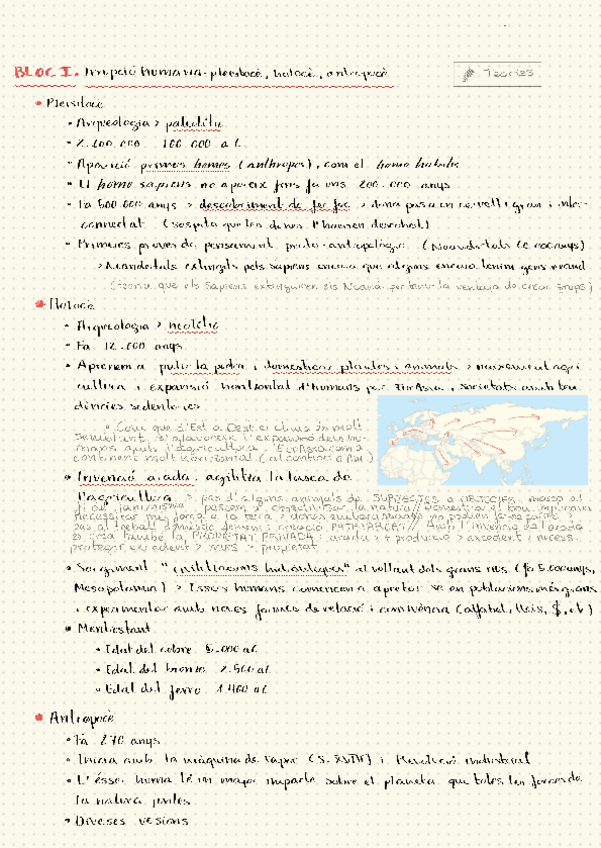 BLOC I. Irrupció humana: pleistocè, holocè, antropocè
Teories
Pleistocè
Arqueologia > paleolític
2.100.000 - 100.000 a.C.
Aparició primers homes (anthropos), com el homo habilis
El homo sapiens no apareix fins fa uns 200.000 anys
Fa 500.000 anys > descobriment de fer foc > dona pas a un cervell gran i inter-
connectat (sospita que les dones l'haurien descobert)
Primeres proves de pensament proto-antropològic (Neandertals 60.000anys)
> Neandertals extingits pels sapiens encara que alguns encara tenim gens neand.
(teoria que els Sapiens extingueren els Neand. per tenir la ventaja de crear grups)
Holocè
Arqueologia > neolític
Fa 12.000 anys
Aprenem a pulir la pedra i domesticar plantes i animals > naixement agri
cultura i expansió horitzontal d'humans per EurÀsia, societats amb ten
dències sedentàries
Com que d'Est a Oest el clima és molt
semblant, s'afavoreix l'expansió dels hu-
mans amb l'agricultura. EurÀsia com a
continent molt horitzontal (al contrari d'Àfr.)
Invenció arada: agilitza la tasca de
l'agricultura > pas d'alguns animals de SUBJECTES a OBJECTES, marca el
fi del animisme
PATRIARCAT // Amb l'invenció de l'arada
es crea també la PROPIETAT PRIVADA: arada > + producció > excedent > necess.
protegir excedent > murs > propietat
Sorgiment "civilitzacions hidràuliques" al voltant dels grans rius (fa 5.000anys,
Mesopotamia) > Éssers humans comencem a apretar-se en poblacions més grans
i experimentar amb noves formes de relació i convivència (alfabet, lleis, $, etc)
Mentrestant
Edat del cobre 5.000 a.C
Edat del bronze 2.500 a.C
Edat del ferro 1.400 a.C
Antropocè
Fa 270 anys
Inicia amb la màquina de vapor (s. XVIII) i Revolució industrial
L'ésser humà té un major impacte sobre el planeta que totes les forces de
la natura juntes
Diverses versions